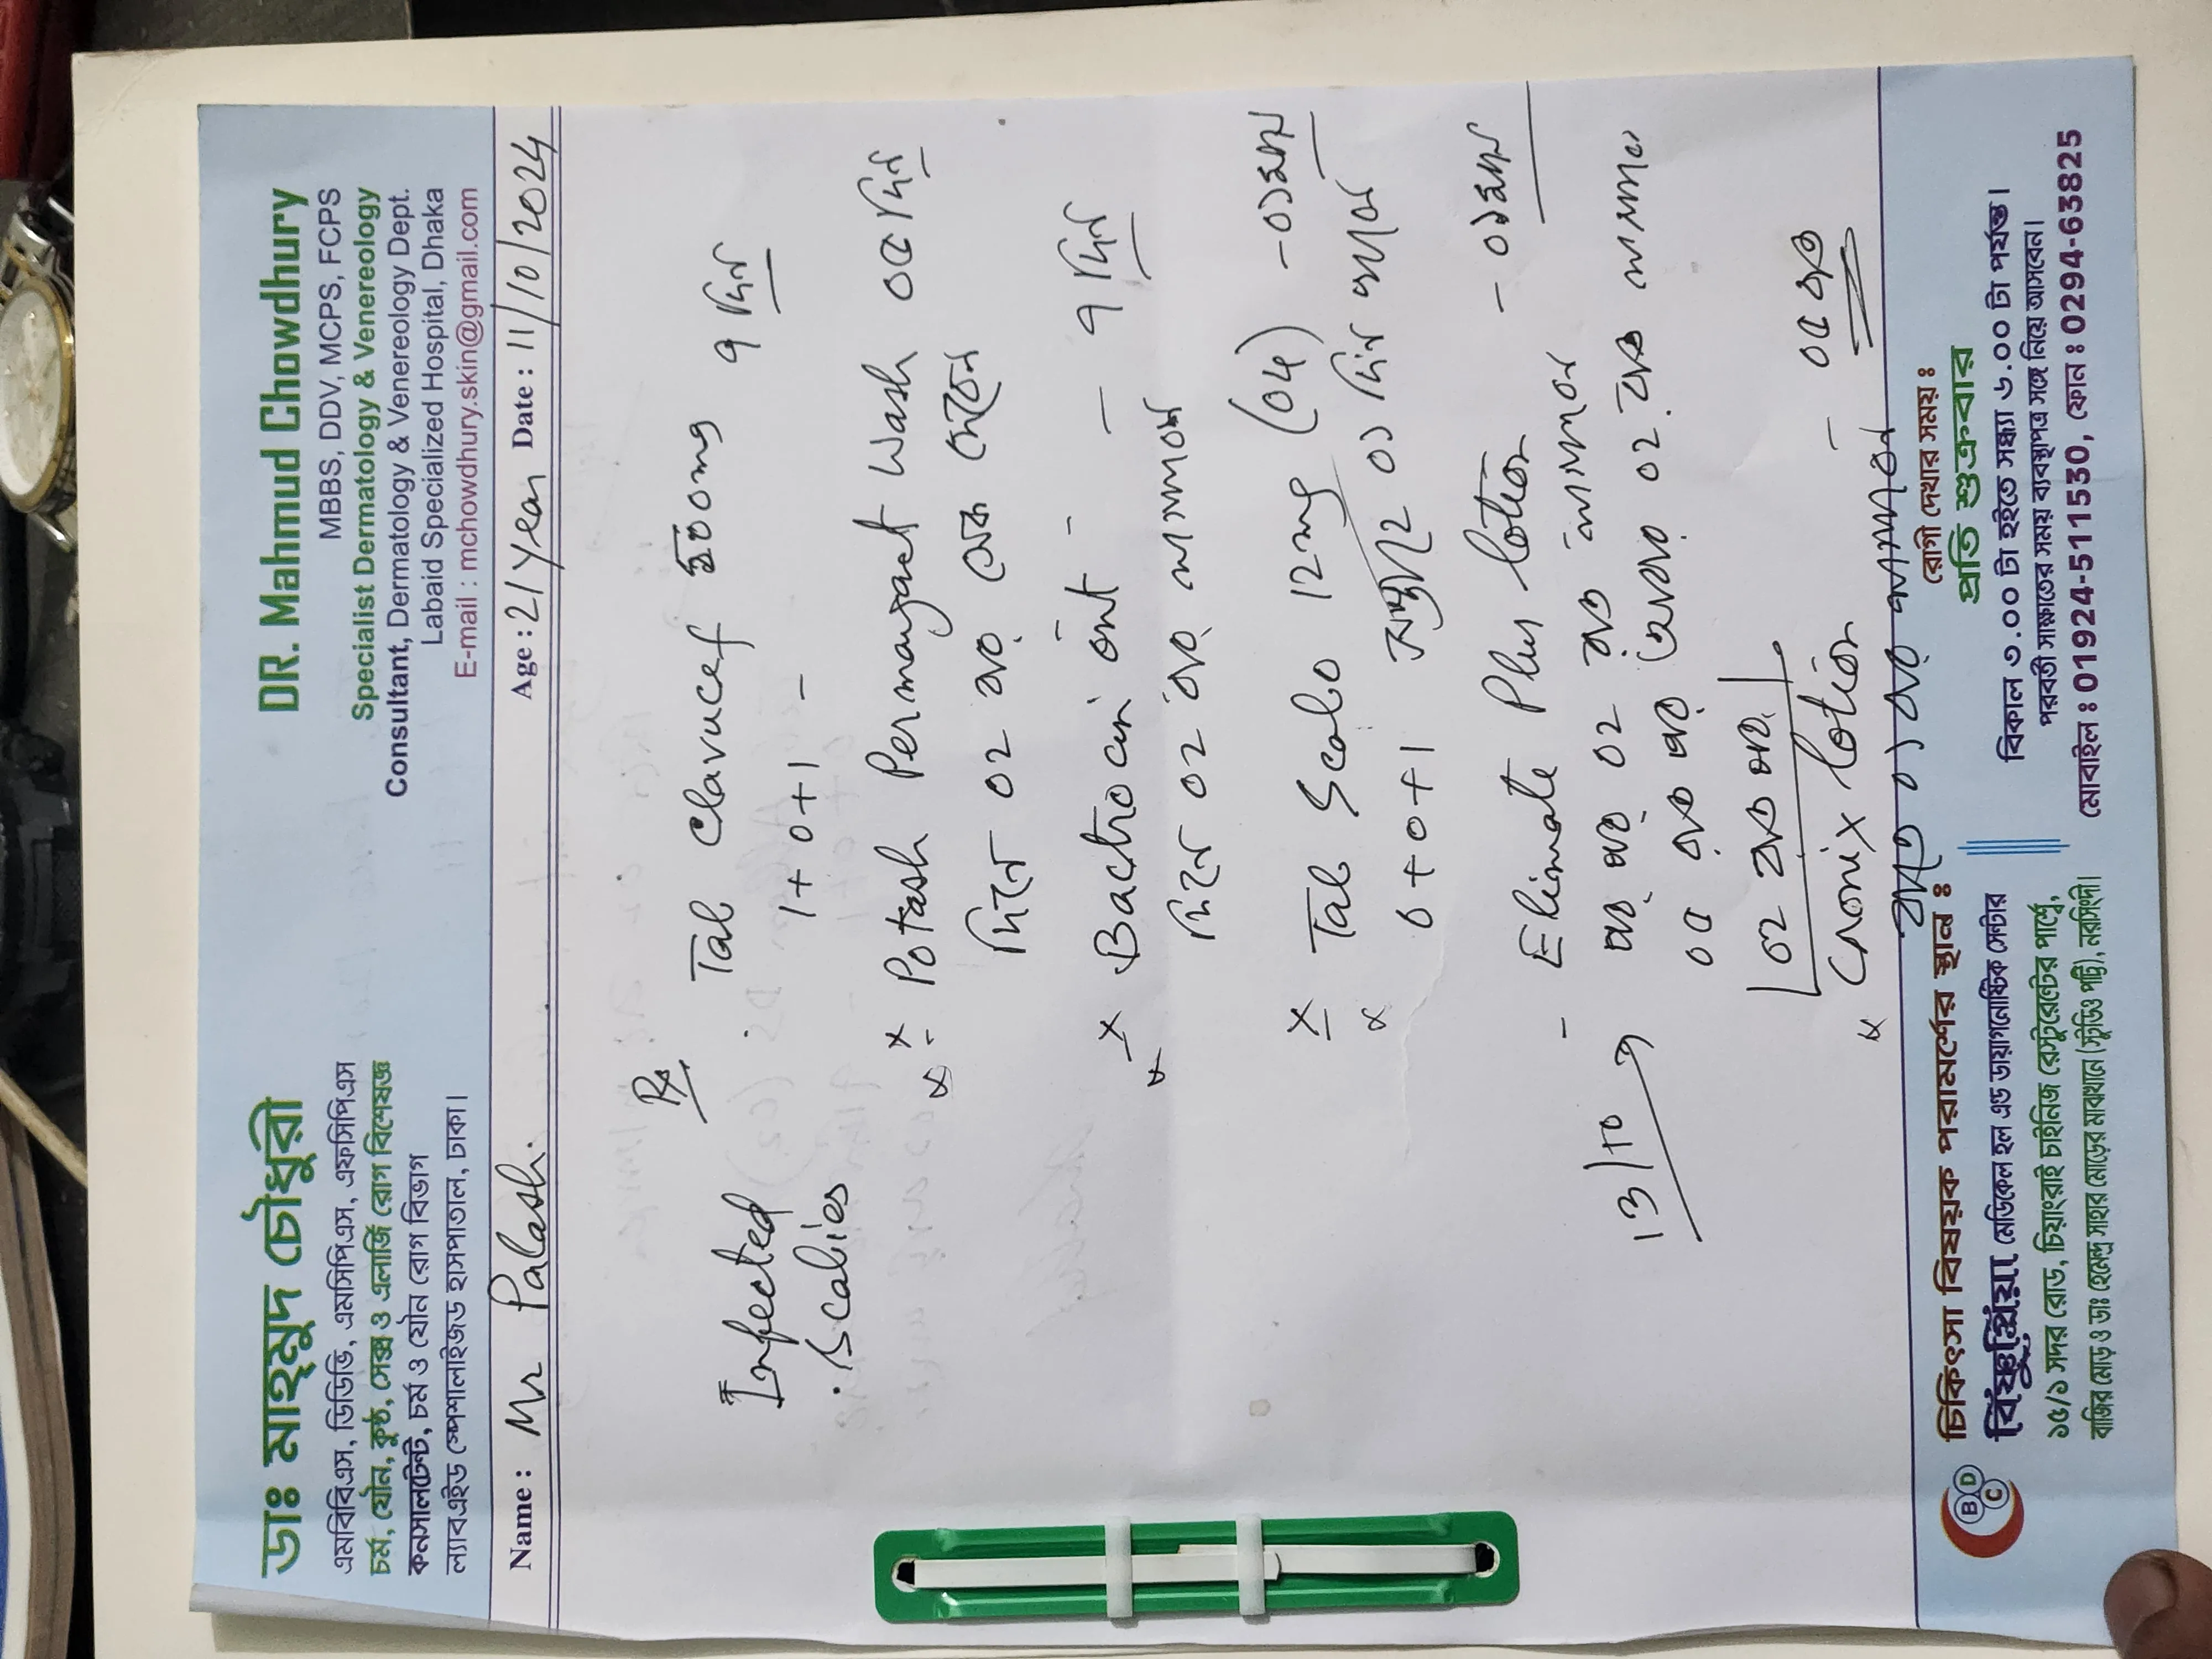 ডাঃ মাহমুদ চৌধুরী
এমবিবিএস, ডিডিভি, এমসিপিএস, এফসিপিএস
চর্ম, যৌন, কুষ্ঠ, সেক্স ও এলার্জি রোগ বিশেষজ্ঞ
কনসালটেন্ট, চর্ম ও যৌন রোগ বিভাগ
ল্যাবএইড স্পেশালাইজড হাসপাতাল, ঢাকা।
DR. Mahmud Chowdhury
MBBS, DDV, MCPS, FCPS
Specialist Dermatology & Venereology
Consultant, Dermatology & Venereology Dept.
Labaid Specialized Hospital, Dhaka
E-mail : mchowdhury.skin@gmail.com
Name : Mr Palash. Age : 21 Year Date : 11/10/2024
Infected
Scabies
Rx
Tab Clavucef 500mg ৭ দিন
1+0+1 -
x Potash Permanganet Wash ০৫ দিন
দিনে ০২ বার সেক দেবেন
x Bactrocin oint - - ৭ দিন
দিনে ০২ বার লাগাবেন
x Tab Scabo 12mg (04) - ০১ মাস
0+0+1 সপ্তাহে ০১ দিন খাবেন
- Elimate Plus lotion - ০১ মাস
পর পর ০২ রাত লাগাবেন
০৫ রাত পর আবার ০২ রাত
13/10
০২ রাত পর
Cronix lotion - ০৫ রাত
রাতে ০১ বার লাগাবেন
চিকিৎসা বিষয়ক পরামর্শের স্থান ঃ
BDC
বিষ্ণুপ্রিয়া মেডিকেল হল এন্ড ডায়াগনোষ্টিক সেন্টার
১৫/১ সদর রোড, চিয়াংরাই চাইনিজ রেস্টুরেন্টের পার্শ্বে,
বাজির মোড় ও ডাঃ হেমেন্দ্র সাহার মোড়ের মাঝখানে (স্টুডিও পট্টি), নরসিংদী।
রোগী দেখার সময় ঃ
প্রতি শুক্রবার
বিকাল ৩.০০ টা হইতে সন্ধ্যা ৬.০০ টা পর্যন্ত।
পরবর্তী সাক্ষাতের সময় ব্যবস্থাপত্র সঙ্গে নিয়ে আসবেন।
মোবাইল ঃ 01924-511530, ফোন ঃ 0294-63825